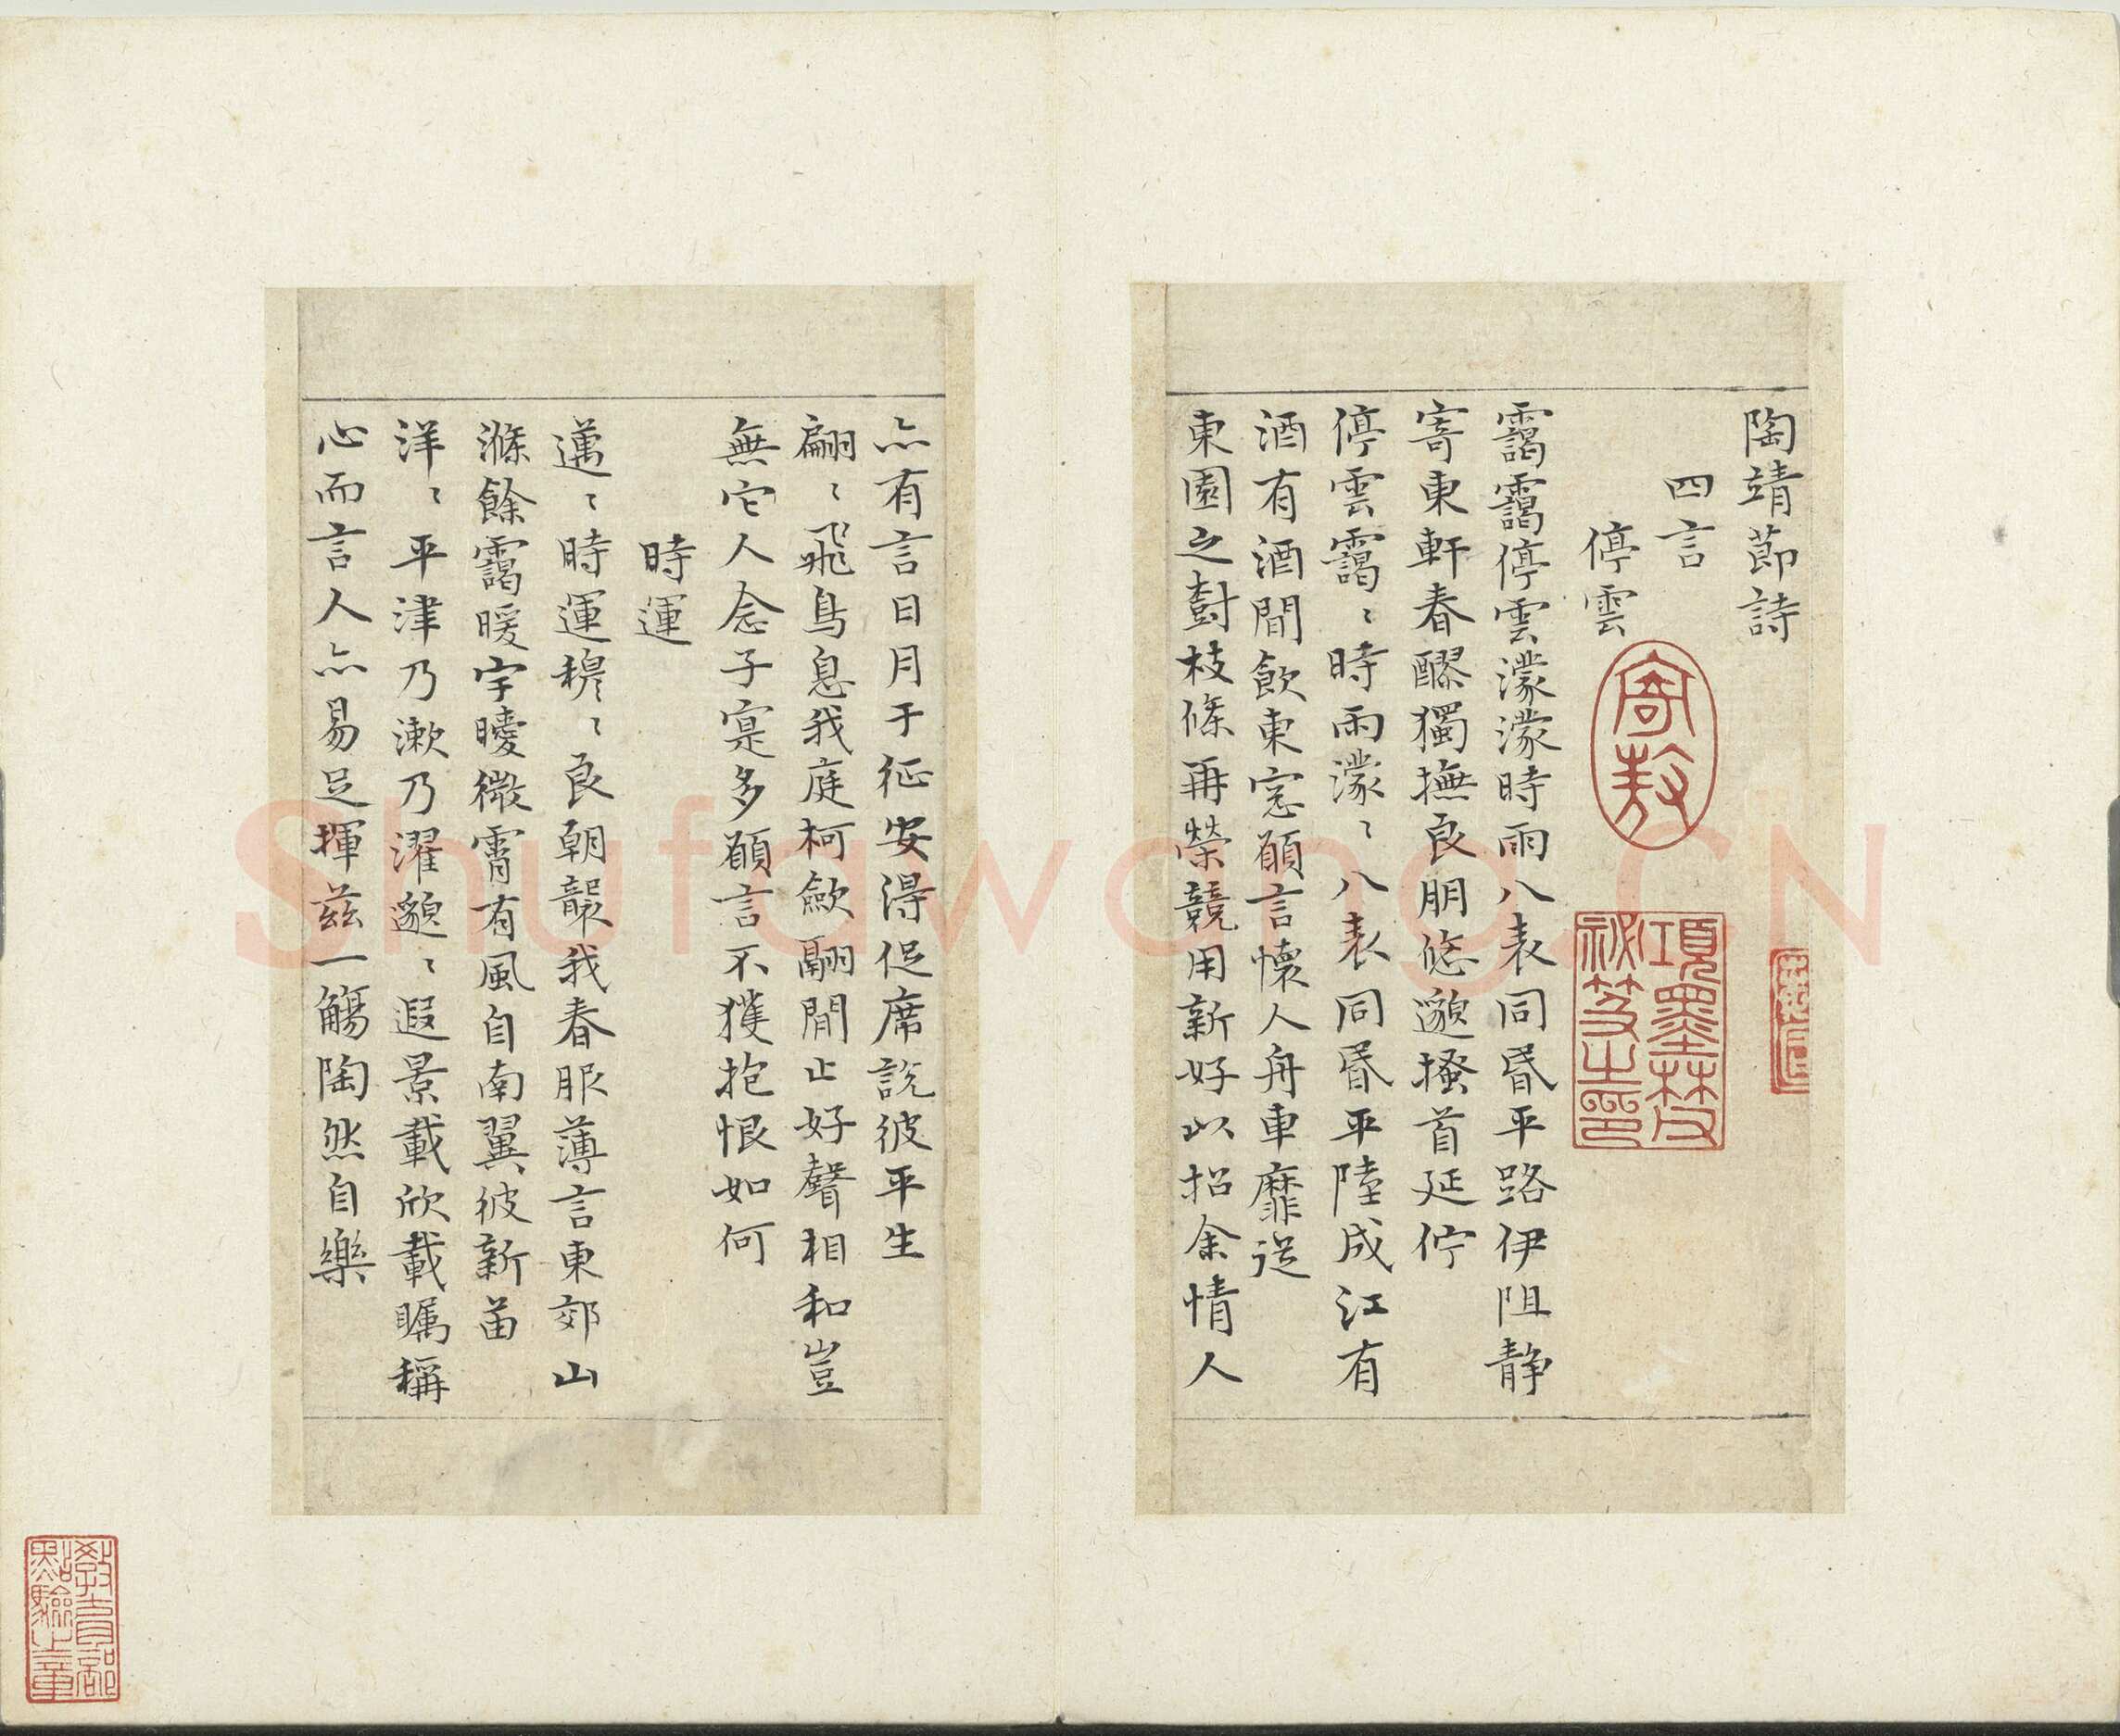 陶靖節詩
四言
停雲
靄靄停雲濛濛時雨八表同昏平路伊阻静
寄東軒春醪獨撫良朋悠邈搔首延佇
停雲靄〻時雨濛〻八表同昏平陸成江有
酒有酒閒飲東窓願言懷人舟車靡從
東園之樹枝條再榮競用新好以招余情人
寄敖
項墨林父
祕笈之印
亦有言日月于征安得促席說彼平生
翩〻飛鳥息我庭柯歛翮閒止好聲相和豈
無它人念子寔多願言不獲抱恨如何
時運
邁〻時運穆〻良朝襲我春服薄言東郊山
滌餘靄暖宇曖微霄有風自南翼彼新苗
洋〻平津乃漱乃濯邈〻遐景載欣載矚稱
心而言人亦易足揮茲一觴陶然自樂
教育部
點驗之章
Shufawang.CN